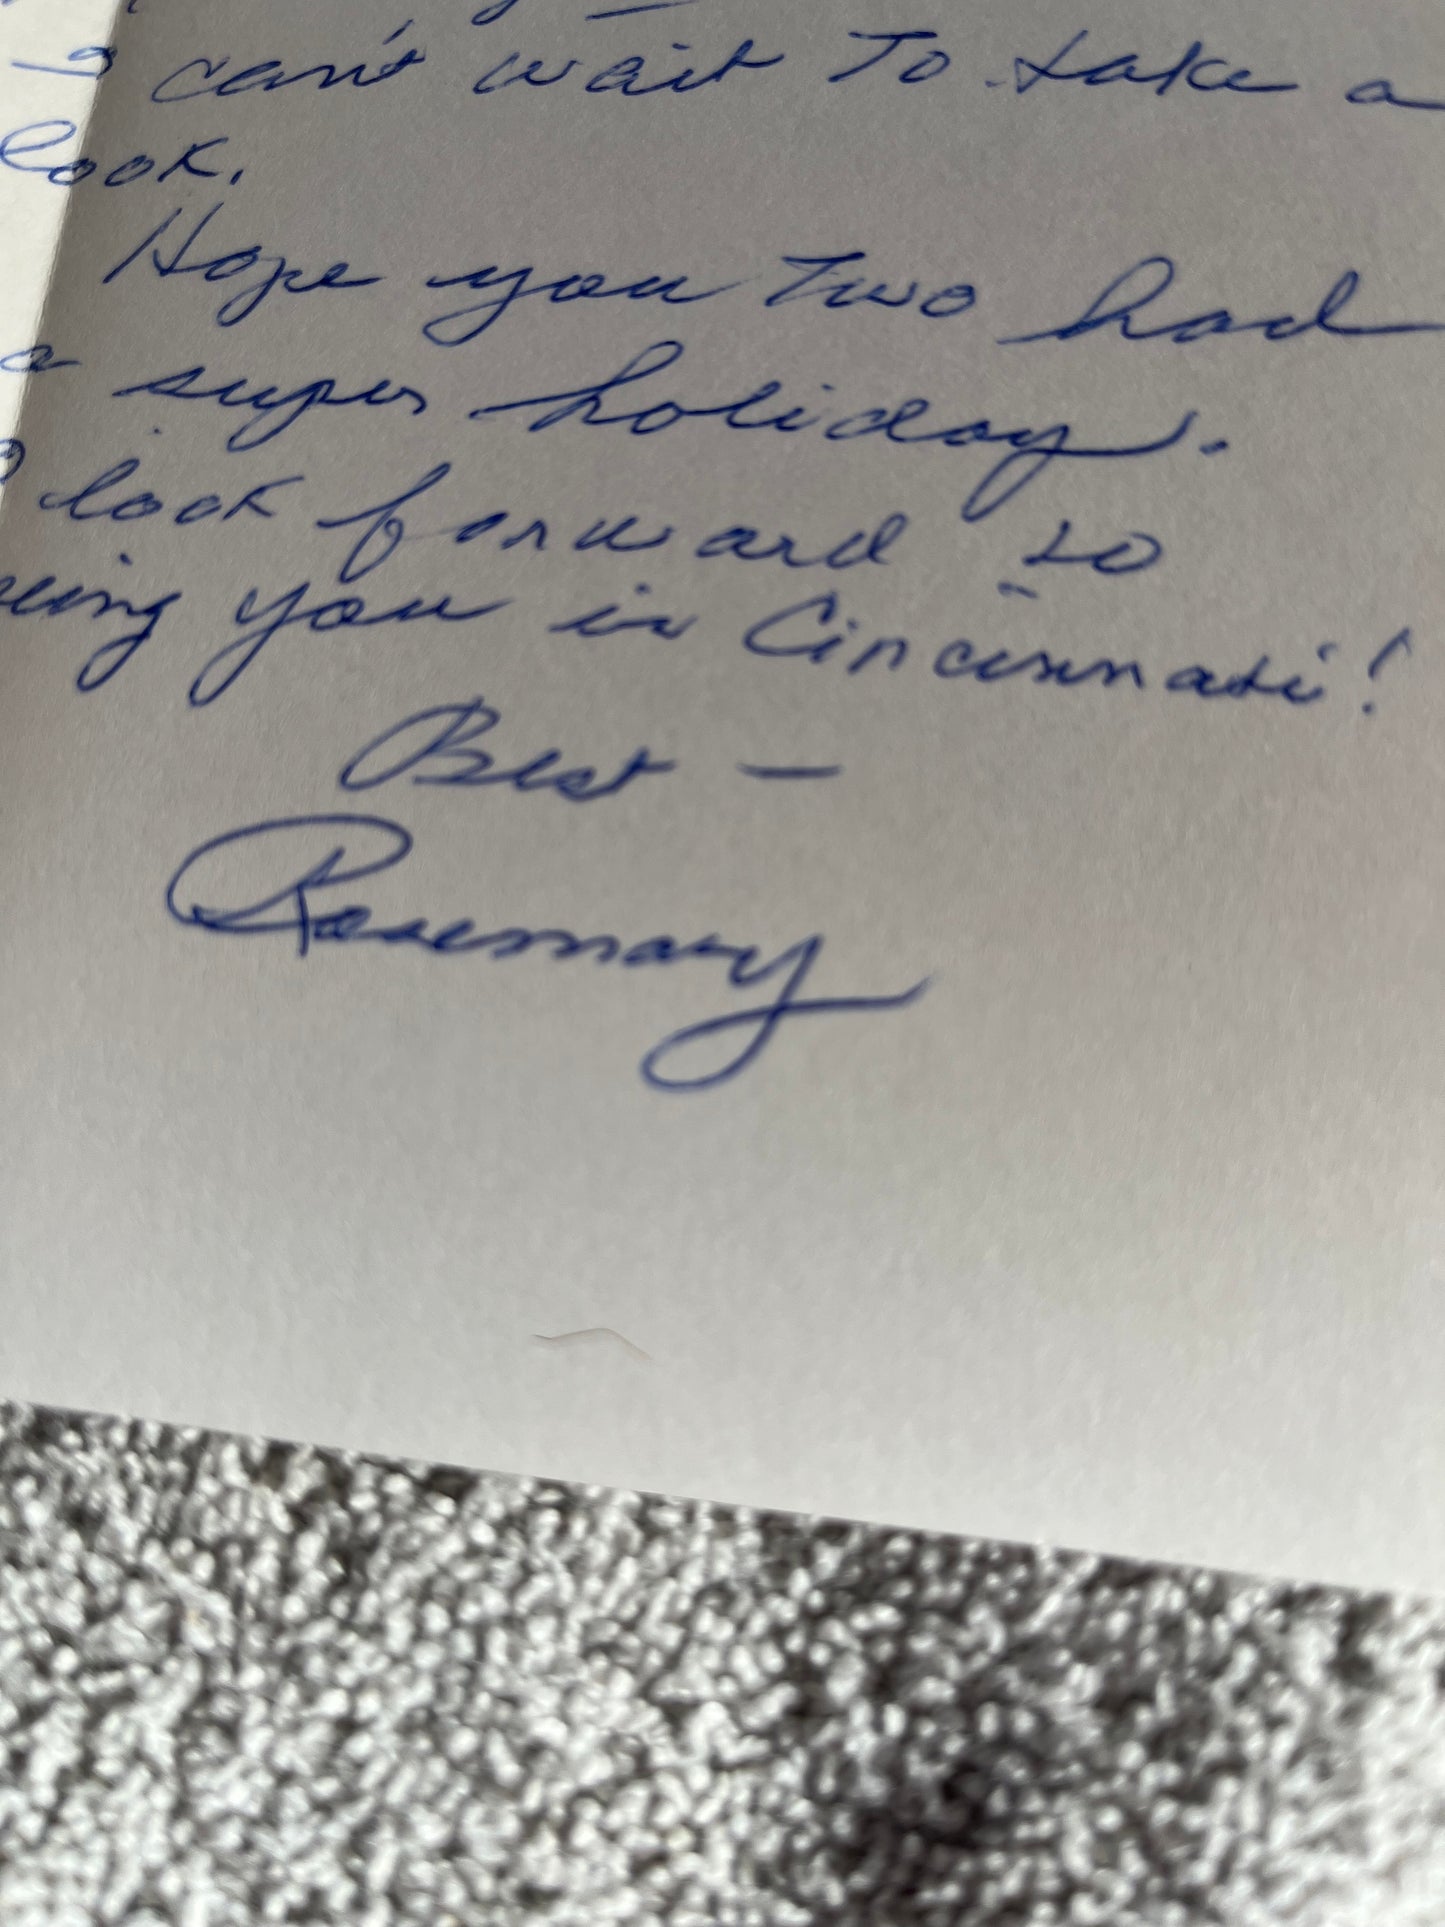 I can't wait to take a
look.
Hope you two had
a super holiday.
I look forward to
seeing you in Cincinnati!
Best —
Rosemary